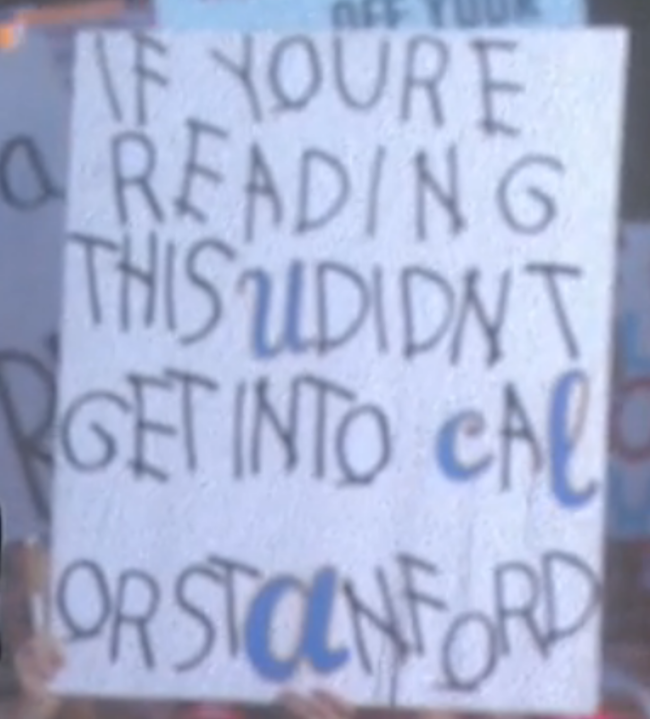 OFF YOUR
IF YOURE
READING
THIS uDIDNT
GET INTO cAl
OR STaNFORD
a
R